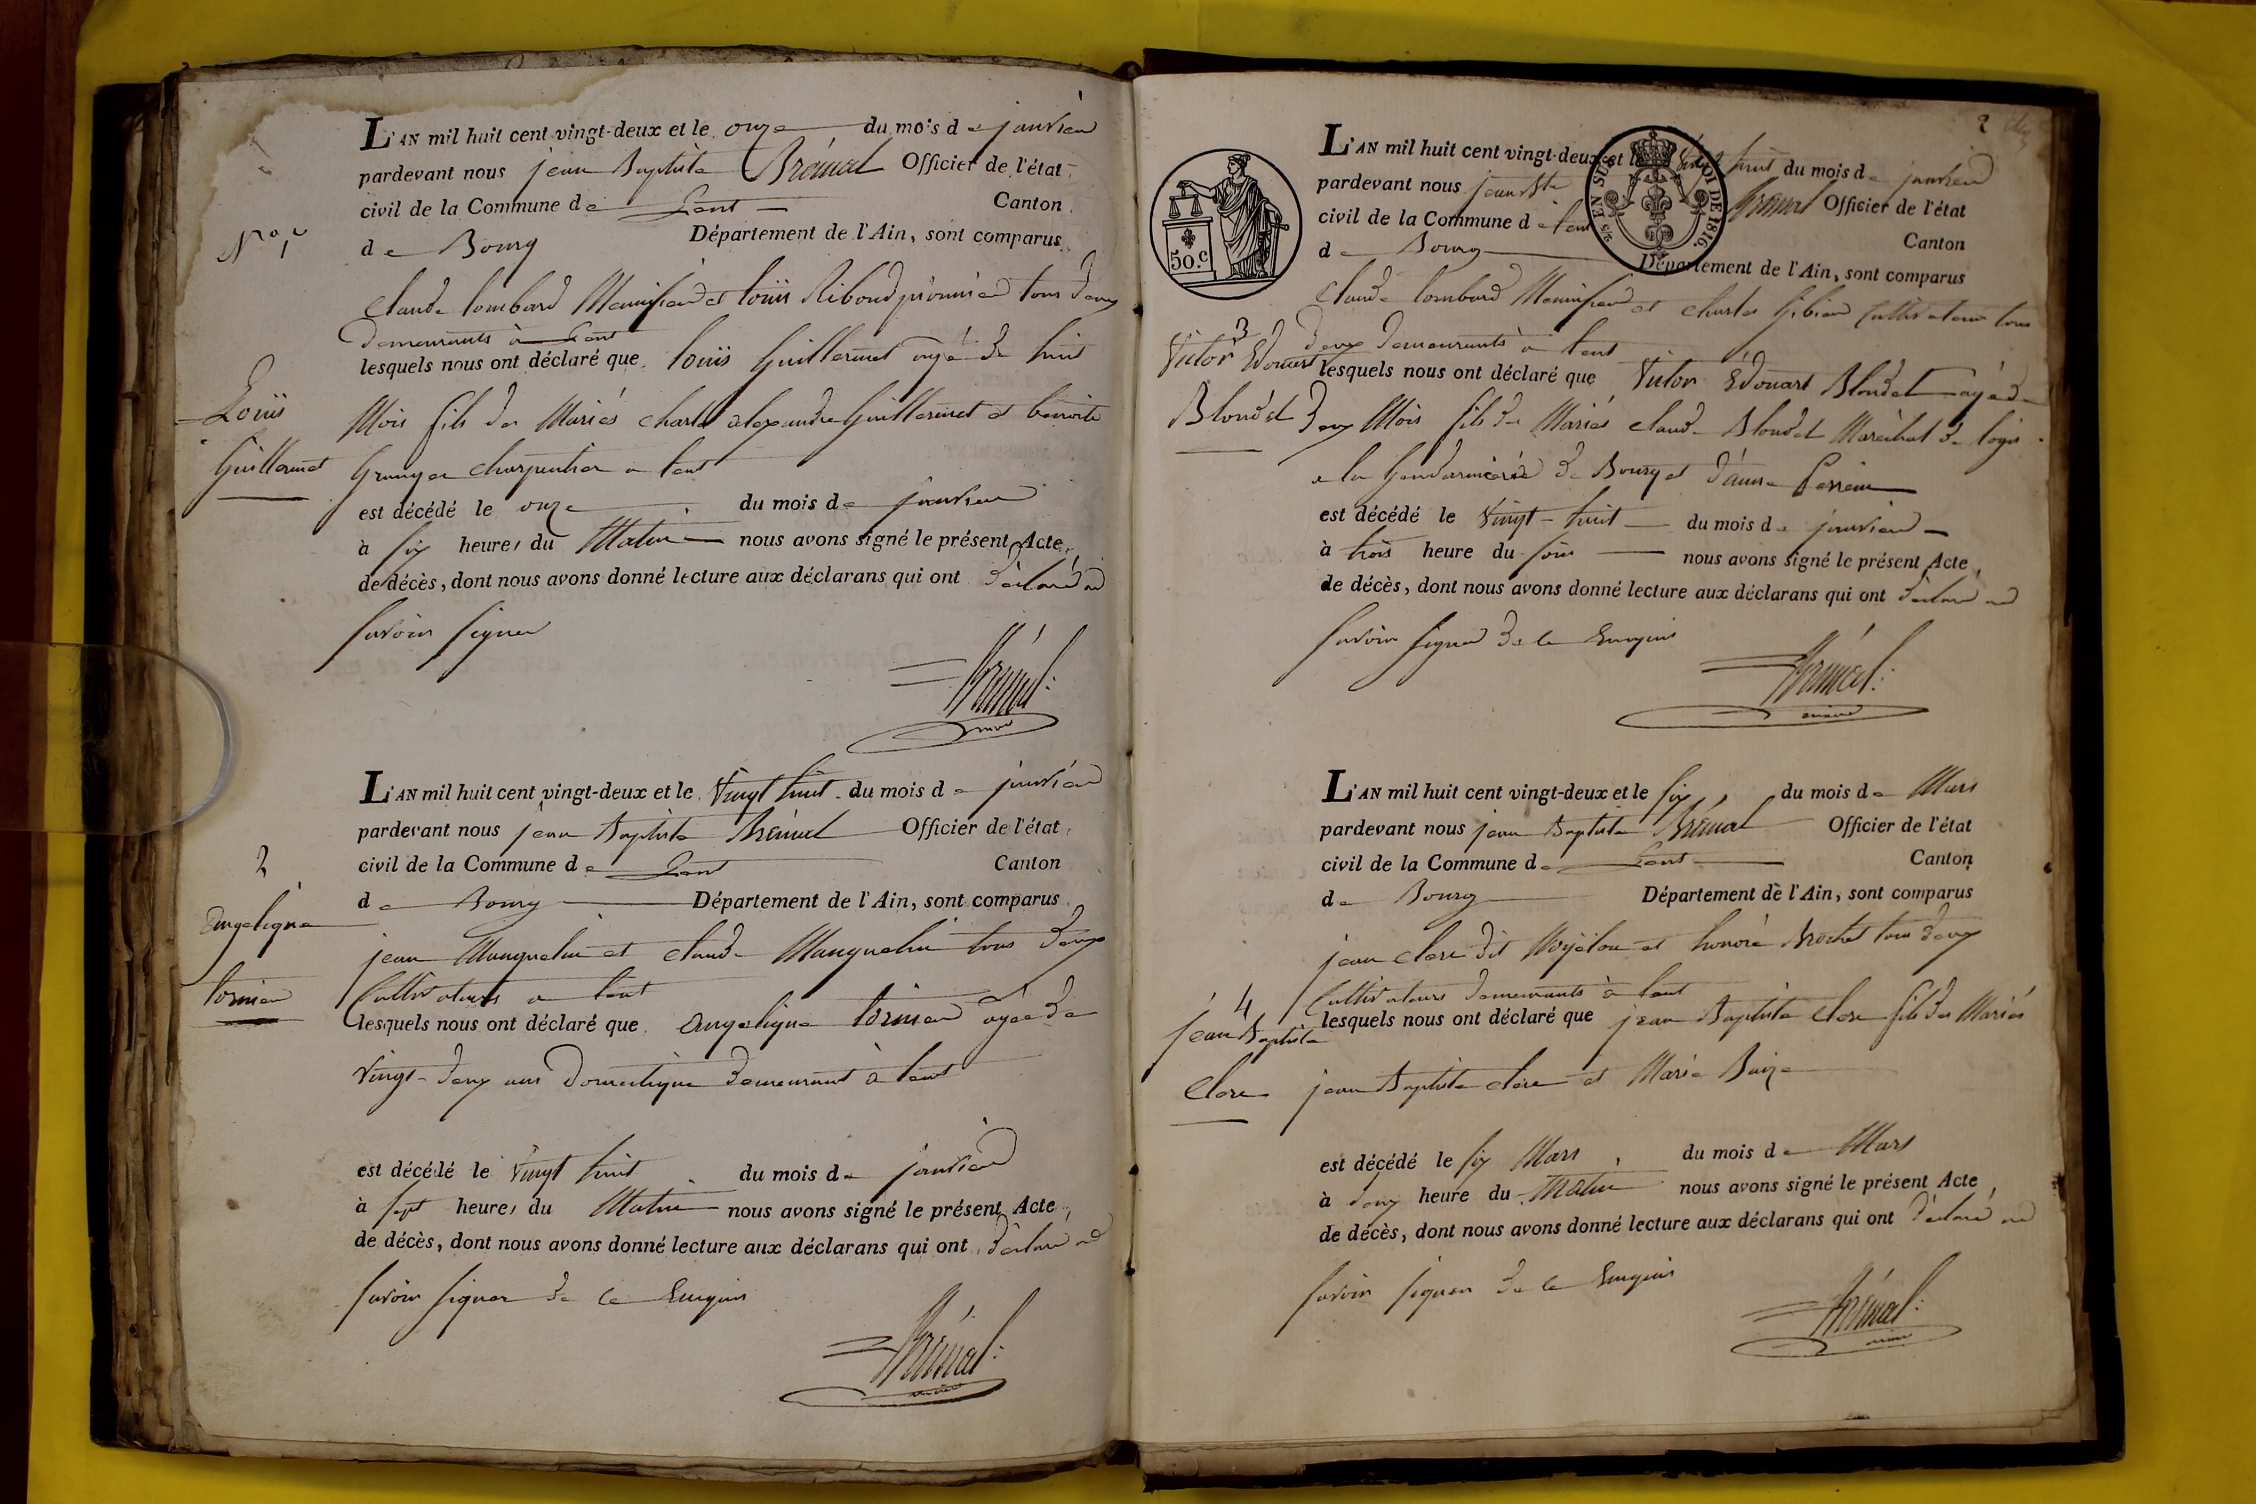 L'AN mil huit cent vingt-deux et le onze du mois de janvier
pardevant nous jean Baptiste Brémal Officier de l'état
civil de la Commune de Lent Canton
de Bourg Département de l'Ain, sont comparus
N° 1er
Claude lombard Menuisier et louis Riboud tous deux
demeurants à Lent
lesquels nous ont déclaré que louis Guillermet agé de huit
Louis
Guillermet
Mois fils des Mariés charle alexandre Guillermet et benoite
Granger charpentier a lent
est décédé le onze du mois de janvier
à six heures du Matin nous avons signé le présent Acte
de décès, dont nous avons donné lecture aux déclarans qui ont déclaré ne
savoir signer
Brémal
maire
L'AN mil huit cent vingt-deux et le Vingt huit du mois de janvier
pardevant nous jean Baptiste Brémal Officier de l'état
civil de la Commune de Lent Canton
de Bourg Département de l'Ain, sont comparus
2
Angelique
jean Manguelin et claude Manguelin tous deux
Cultivateurs a lent
lesquels nous ont déclaré que Angelique agée de
Vingt-deux ans domestique demeurant à lent
est décédé le Vingt huit du mois de janvier
à sept heures du Matin nous avons signé le présent Acte
de décès, dont nous avons donné lecture aux déclarans qui ont déclaré ne
savoir signer de ce Enquis
Brémal
maire
2
50.c
EN SUS LOI DE 1816.
L'AN mil huit cent vingt-deux et le Vingt huit du mois de janvier
pardevant nous jean Bte Brémal Officier de l'état
civil de la Commune de Lent Canton
de Bourg Département de l'Ain, sont comparus
Claude lombard Menuisier et charles Gibier Cultivateur tous
deux demeurants à lent
3
Victor Edouart
Blondel
lesquels nous ont déclaré que Victor Edouart Blondel agé de
deux Mois fils de Mariés claude Blondel Maréchal de logis
a la Gendarmerie de Bourg et d'anne Perrein
est décédé le Vingt-huit du mois de janvier
à trois heure du soir nous avons signé le présent Acte
de décès, dont nous avons donné lecture aux déclarans qui ont déclaré ne
savoir signer de ce Enquis
Brémal
maire
L'AN mil huit cent vingt-deux et le six du mois de Mars
pardevant nous jean Baptiste Brémal Officier de l'état
civil de la Commune de Lent Canton
de Bourg Département de l'Ain, sont comparus
jean clere dit et honoré Brochet tous deux
Cultivateurs demeurants à lent
4
jean Baptiste
Clere
lesquels nous ont déclaré que jean Baptiste clere fils des Mariés
jean Baptiste clere et Marie Buize
est décédé le six Mars du mois de Mars
à deux heure du Matin nous avons signé le présent Acte
de décès, dont nous avons donné lecture aux déclarans qui ont déclaré ne
savoir signer de ce Enquis
Brémal
maire